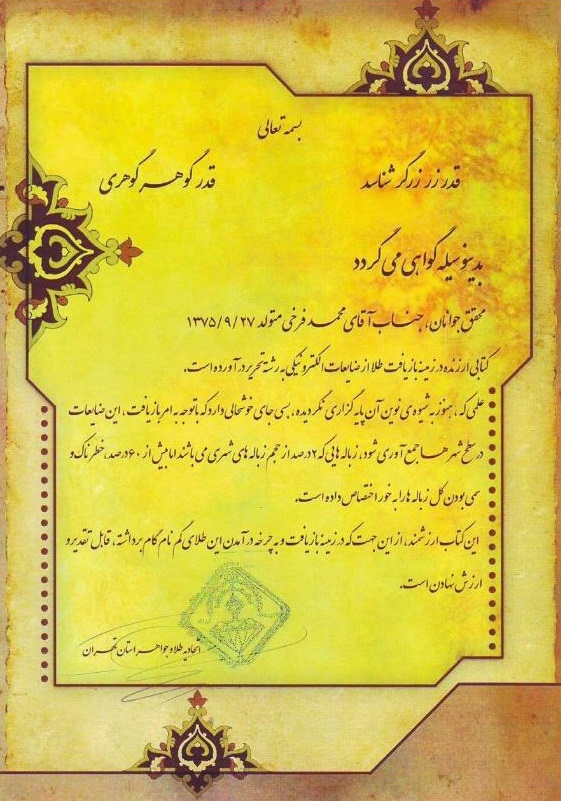 بسمه تعالی
قدر زر زرگر شناسد قدر گوهر گوهری
بدینوسیله گواهی می گردد
محقق جوانان، جناب آقای محمد فرخی متولد ۱۳۷۵/۹/۲۷
کتابی ارزنده در زمینه بازیافت طلا از ضایعات الکترونیکی به رشته تحریر در آورده است.
علمی که، هنوز به شیوه ی نوین آن پایه گزاری نگردیده، بسی جای خوشحالی دارد که با توجه به امر بازیافت، این ضایعات
در سطح شهر ها جمع آوری شود، زباله هایی که ۲ درصد از حجم زباله های شهری می باشند اما بیش از ۶۰ درصد، خطرناک و
سمی بودن کل زباله ها را به خود اختصاص داده است.
این کتاب ارزشمند، از این جهت که در زمینه بازیافت و به چرخه در آمدن این طلای گم نام گام برداشته، قابل تقدیر و
ارزش نهادن است.
اتحادیه طلا و جواهر استان تهران